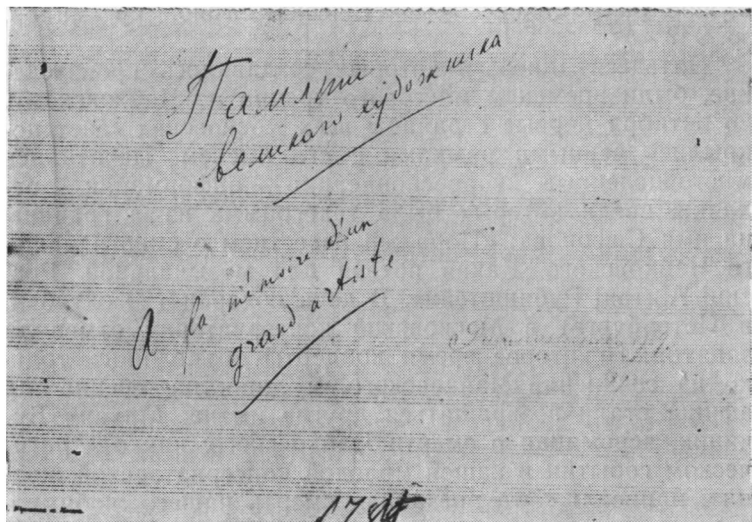 Памяти
великаго художника
A la mémoire d'un
grand artiste